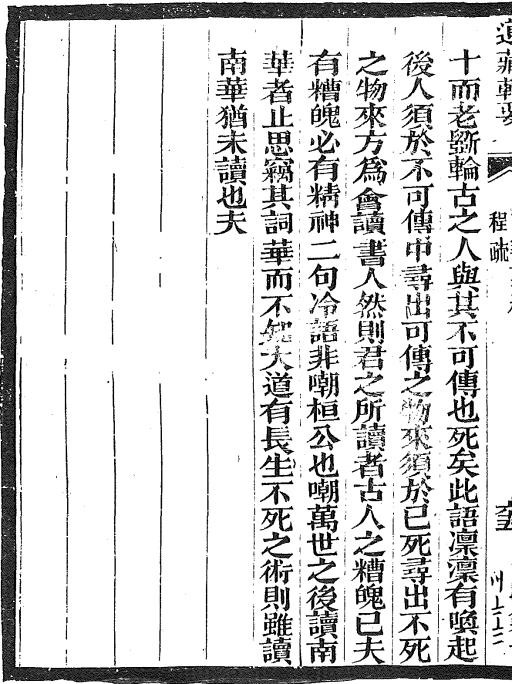 道藏輯要
程疏
十而老斵輪古之人與其不可傳也死矣此語凛凛有喚起
後人須於不可傳中尋出可傳之物來須於已死尋出不死
之物來方爲會讀書人然則君之所讀者古人之糟魄已夫
有糟魄必有精神二句冷語非嘲桓公也嘲萬世之後讀南
華者止思竊其詞華而不知大道有長生不死之術則雖讀
南華猶未讀也夫